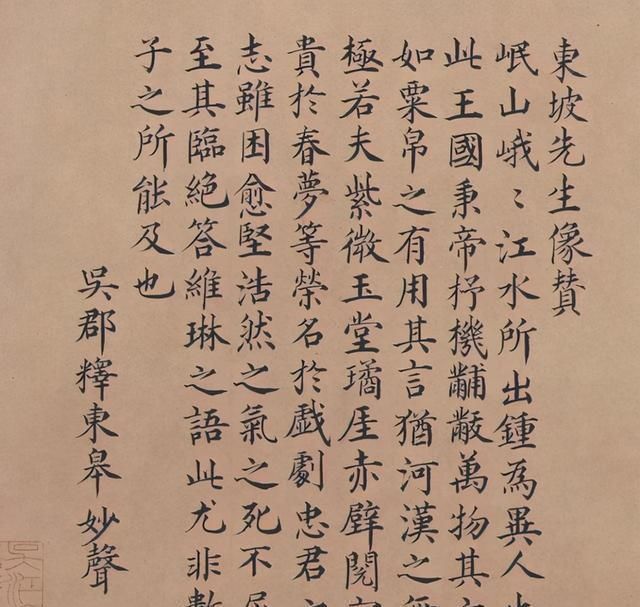 東坡先生像贊
岷山峨〻江水所出鍾為異人
此王國秉帝杼機黼黻萬物其
如粟帛之有用其言猶河漢之無
極若夫紫微玉堂璚厓赤壁閱
貴於春夢等榮名於戲劇忠君
志雖困愈堅浩然之氣之死不
至其臨絕答維琳之語此尤非數
子之所能及也
吳郡釋東皋妙聲